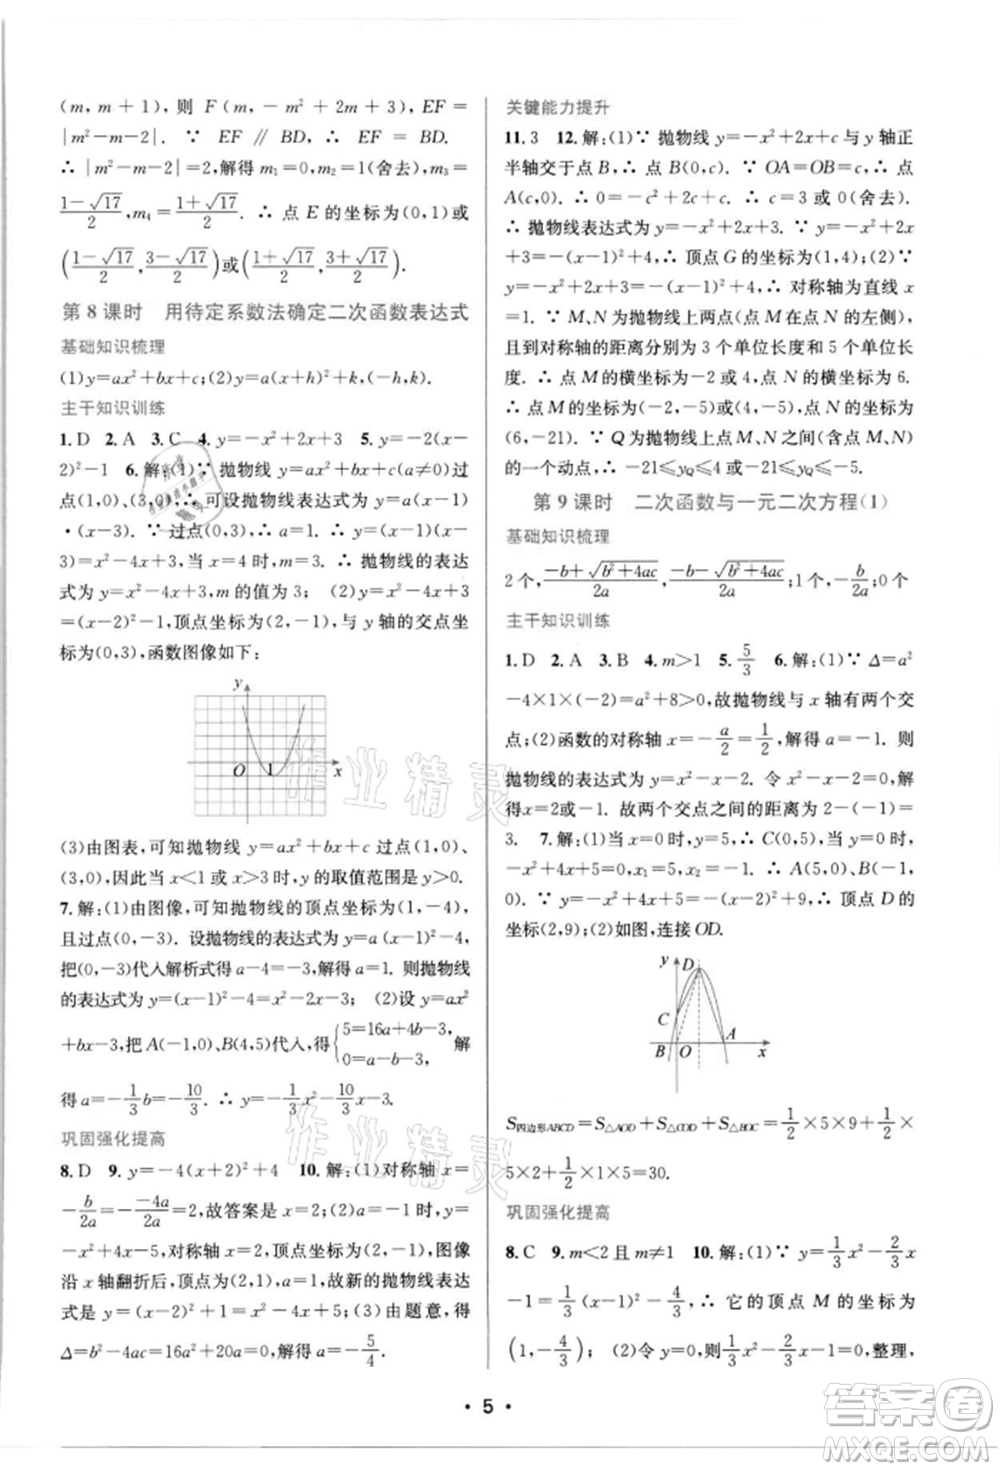 (m, m+1),则 F(-m²+2m+3),EF=
|m²-m-2|. ∵ EF∥BD, ∴ EF=BD.
∴ |m²-m-2|,解得 m₁=0,m₂=1(舍去),m₃=
\frac{1-\sqrt{17}}{2},m₄=\frac{1+\sqrt{17}}{2}. ∴ 点 E 的坐标为(0,1)或
(\frac{1-\sqrt{17}}{2},\frac{3-\sqrt{17}}{2})或(\frac{1+\sqrt{17}}{2},\frac{3+\sqrt{17}}{2}).
第 8 课时 用待定系数法确定二次函数表达式
基础知识梳理
(1)y=ax²+bx+c;(2)y=a(x+h)²+k,(-h,k).
主干知识训练
1. D 2. A 3. C 4. y=-x²+2x+3 5. y=2(x-
2)²-1 6. 解:(1)∵ 抛物线 y=ax²+bx+c(a≠0)过
点(1,0),(3,0),∴ 可设抛物线表达式为 y=a(x-1)
·(x-3) ∵ 过点(0,3),∴ a=1,∴ 抛物线的表达
式为 y=x²-4x+3,m 的值为 3; (2)抛物线的表达
式为 y=x²-4x+3,顶点坐标为(2,-1),与 y 轴的交点坐
标为(0,3),函数图像如下:
y
O 1 x
(3)由图表,可知抛物线 y=ax²+bx+c 过点(1,0),
(3,0),因此当 x<1 或 x>3 时,y 的取值范围是 y>0.
7. 解:(1)由图像,可知抛物线的顶点坐标为(1,-4),
且过点(0,-3). 设抛物线的表达式为 y=a(x-1)²-4,
把(0,-3)代入解析式得 a-4=-3,解得 a=1. 则抛物线
的表达式为 y=(x-1)²-4=x²-2x-3; (2)设 y=ax²
+bx-3,把 A(-1,0)、B(4,5)代入,得{5=16a+4b-3, 0=16a-4b-3, 解
得 a=-\frac{1}{3}b=-\frac{10}{3}. ∴ y=-\frac{1}{3}x²-\frac{10}{3}x-3.
巩固强化提高
8. D 9. y=-4(x+2)²+4 10. 解:(1)对称轴 x=
-\frac{b}{2a}=-\frac{-4a}{2a}=2,故答案是 x=2; (2)当 a=-1 时,y=
-x²-4x+5,可知对称轴 x=2,顶点为(2,-1),图像
沿 x 轴翻折后,顶点为(2,1),故新的抛物线表达
式是 y=-(x-2)²+1=-x²+4x-3;(3)由题意,得
Δ=b²-4ac=16a²+20a=0,解得 a=-\frac{5}{4}.
关键能力提升
11. 3 12. 解:(1)∵ 抛物线 y=-x²+2x+c 与 y 轴正
半轴交于点 B,∴ 点 B(0,c). ∵ OA=OB=c,∴ 点
A(c,0). ∴ -c²+2c+c=0,∴ c=3 或 c=0(舍去).
∴ 抛物线表达式为 y=-x²+2x+3. ∵ y=-x²+2x+3
=-(x-1)²+4,∴ 顶点 G 的坐标为(1,4);(2)∵ y=-x²
+2x+3=-(x-1)²+4,∴ 对称轴为直线 x=
1. ∵ M、N 为抛物线上两点(点 M 在点 N 的左侧),
且到对称轴的距离分别为 3 个单位长度和 5 个单位长
度. ∴ 点 M 的横坐标为-2 或 4,点 N 的横坐标为 6.
∴ 点 M 的坐标为(-2,-5)或(4,-5),点 N 的坐标为
(6,-21). ∵ Q为抛物线上点 M、N 之间(含点 M、N)
的一个动点,∴ -21≤y_Q≤4 或-21≤y_Q≤-5.
第 9 课时 二次函数与一元二次方程(1)
基础知识梳理
2 个,\frac{-b+\sqrt{b²+4ac}}{2a},\frac{-b-\sqrt{b²+4ac}}{2a};1 个,-\frac{b}{2a};0 个
主干知识训练
1. D 2. A 3. B 4. m>1 5. \frac{5}{3} 6. 解:(1)∵ Δ=a²
-4×1×(-2)=a²+8>0,故抛物线与 x 轴有两个交
点;(2)函数的对称轴 x=-\frac{a}{2}=\frac{1}{2},解得 a=-1. 则
抛物线的表达式为 y=x²-x-2. 令 y=x²-x-2=0,
解得 x=2或-1. 故两个交点之间的距离为 2+1=
3. 7. 解:(1)当 x=0 时,y=5,∴ C(0,5),当 y=
0 时,-x²+4x+5=0,x₁=5,x₂=-1,∴ A(5,0),B(-1,
0). ∵ y=-x²+4x+5=-(x-2)²+9,∴ 顶点 D 的
坐标(2,9);(2)如图,连接 OD.
y D
C
B O A x
S四边形ABCD=S△AOD+S△COD+S△BOC=\frac{1}{2}×5×9+\frac{1}{2}×
5×2+\frac{1}{2}×1×5=30.
巩固强化提高
8. C 9. m<2 且 m≠1 10. 解:(1)∵ y=\frac{1}{3}x²-\frac{2}{3}x
-1=\frac{1}{3}(x-1)²-\frac{4}{3},∴ 它的顶点 M 的坐标为
(1,-\frac{4}{3}); (2)令 y=0,得\frac{1}{3}x²-\frac{2}{3}x-1=0,整理,
· 5 ·
作业精灵
作业精灵
答案圈
MXQE.COM